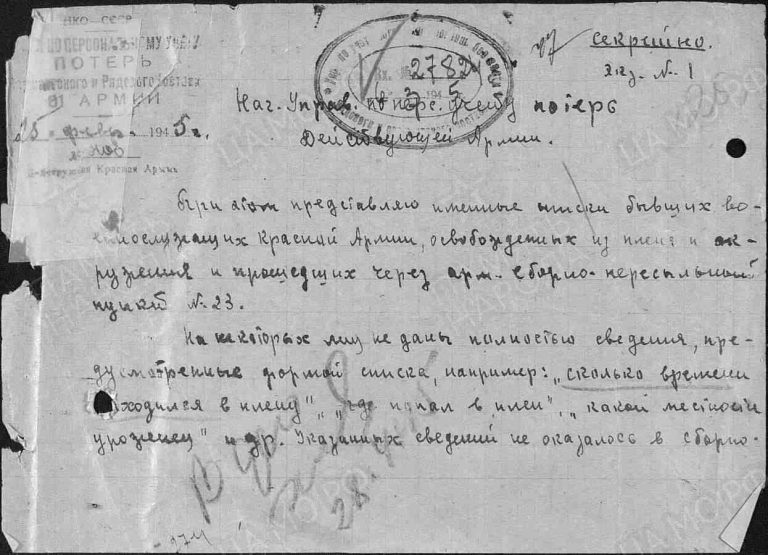 НКО – СССР
ПО ПЕРСОНАЛЬНОМУ УЧЕТУ
ПОТЕРЬ
и Рядового Состава
61 АРМИИ
15 " февр. 1945 г.
Действующая Красная Армия
2782
3 5
Секретно.
Экз. № 1
Нач. Управ. по перс. учету потерь
Действующей Армии.
При этом представляю именные списки бывших во-
еннослужащих Красной Армии, освобожденных из плена и ок-
ружения и прошедших через арм. сборно-пересыльный
пункт № 23.
На некоторых лиц не даны полностью сведения, пре-
дусмотренные формой списка, например: „сколько времени
находился в плену", „где попал в плен", „какой местности
уроженец" и др. Указанных сведений не оказалось в сборно-
28.
274
ЦАМО РФ